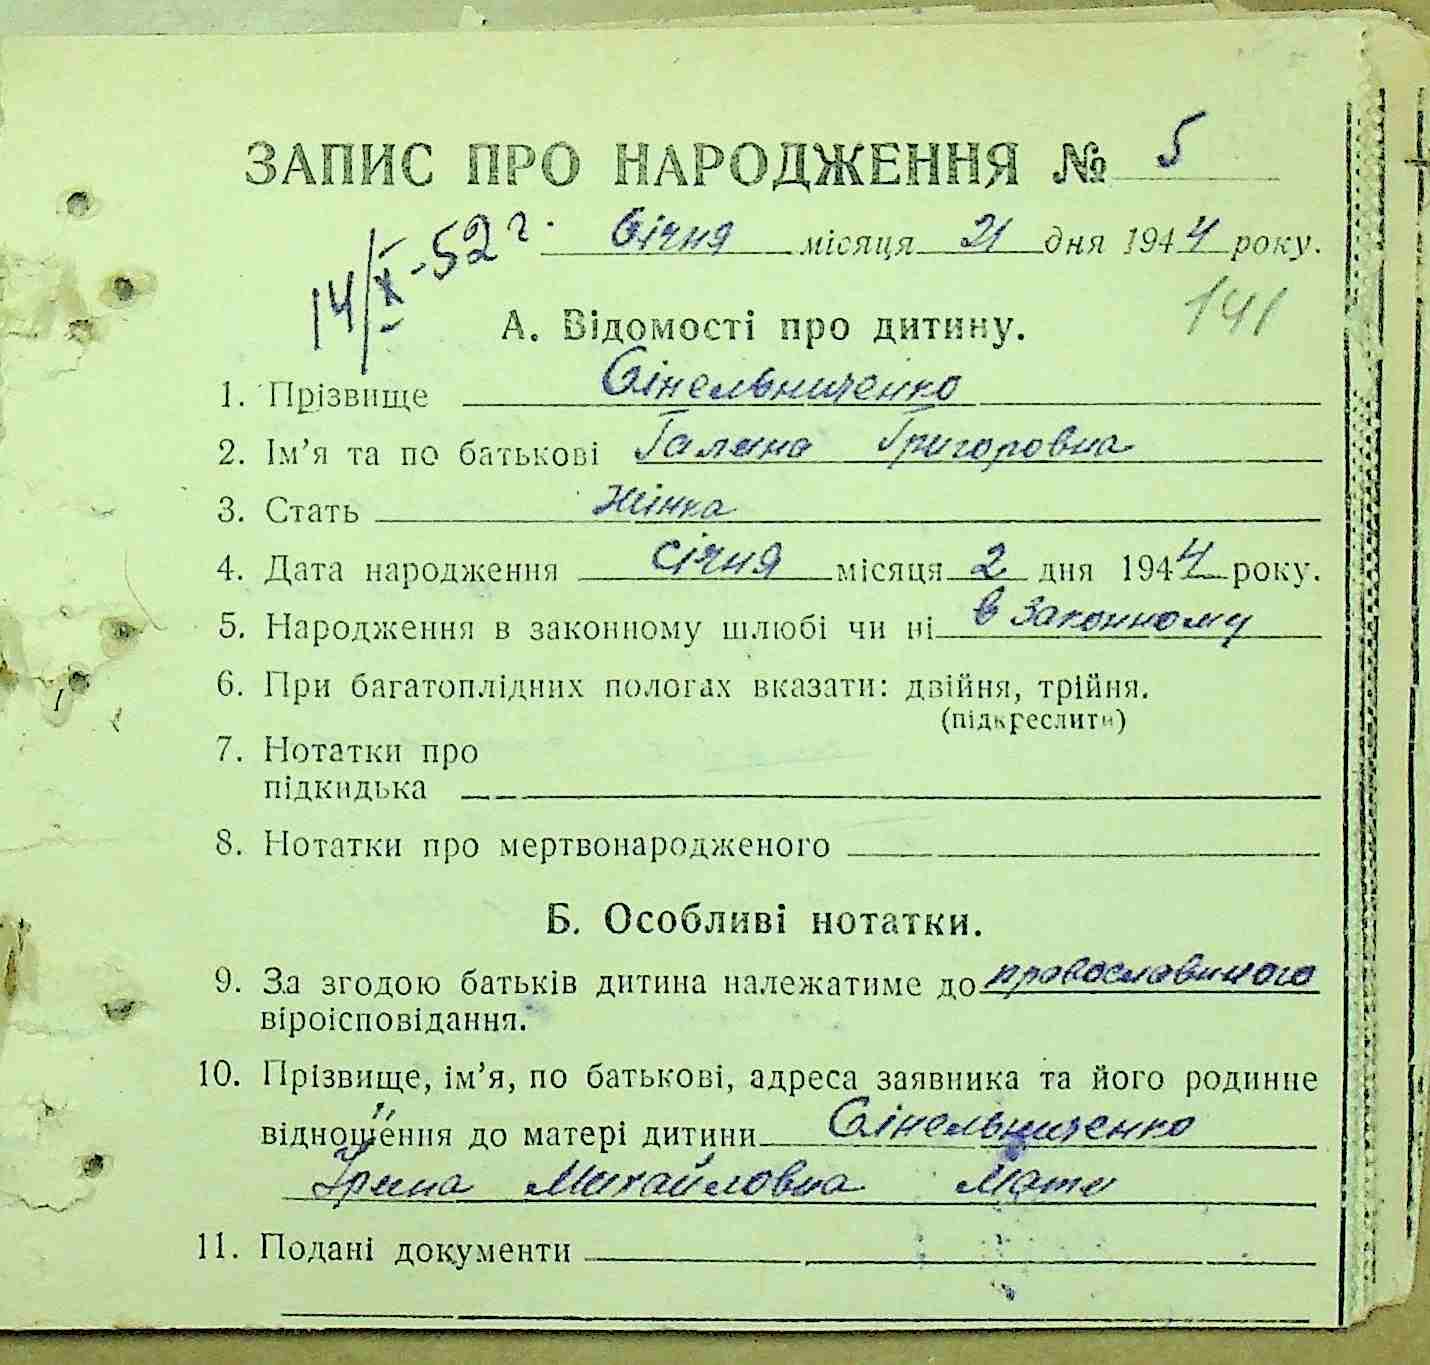 ЗАПИС ПРО НАРОДЖЕННЯ № 5
14/X-52 г. Січня місяця 21 дня 1944 року.
141
А. Відомості про дитину.
1. Прізвище Сінельниченко
2. Ім’я та по батькові Галина Григоровна
3. Стать Жінка
4. Дата народження січня місяця 2 дня 1944 року.
5. Народження в законному шлюбі чи ні в законному
6. При багатоплідних пологах вказати: двійня, трійня.
(підкреслити)
7. Нотатки про
підкидька
8. Нотатки про мертвонародженого
Б. Особливі нотатки.
9. За згодою батьків дитина належатиме до православного
віроісповідання.
10. Прізвище, ім’я, по батькові, адреса заявника та його родинне
відношення до матері дитини Сінельниченко
Ірина Михайловна Мати
11. Подані документи